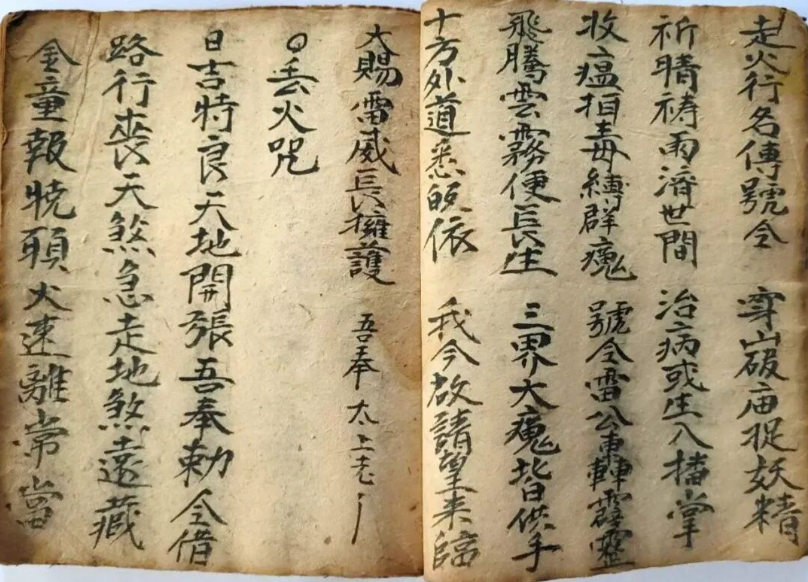 走火行名傳號令 穿山破庙捉妖精
祈晴祷雨濟世間 治病或生入播掌
收瘟拍毒縛群魔 號令雷公轟轟霹靂
飛騰雲霧便長生 三界大魔皆供手
十方外道悉皈依 我今啟請望来臨
大賜雷威長擁護 吾奉太上老
丢火咒
日吉特良天地開張吾奉勅令借
路行丧天煞急走地煞遠藏
金童報曉頭犬速離常當